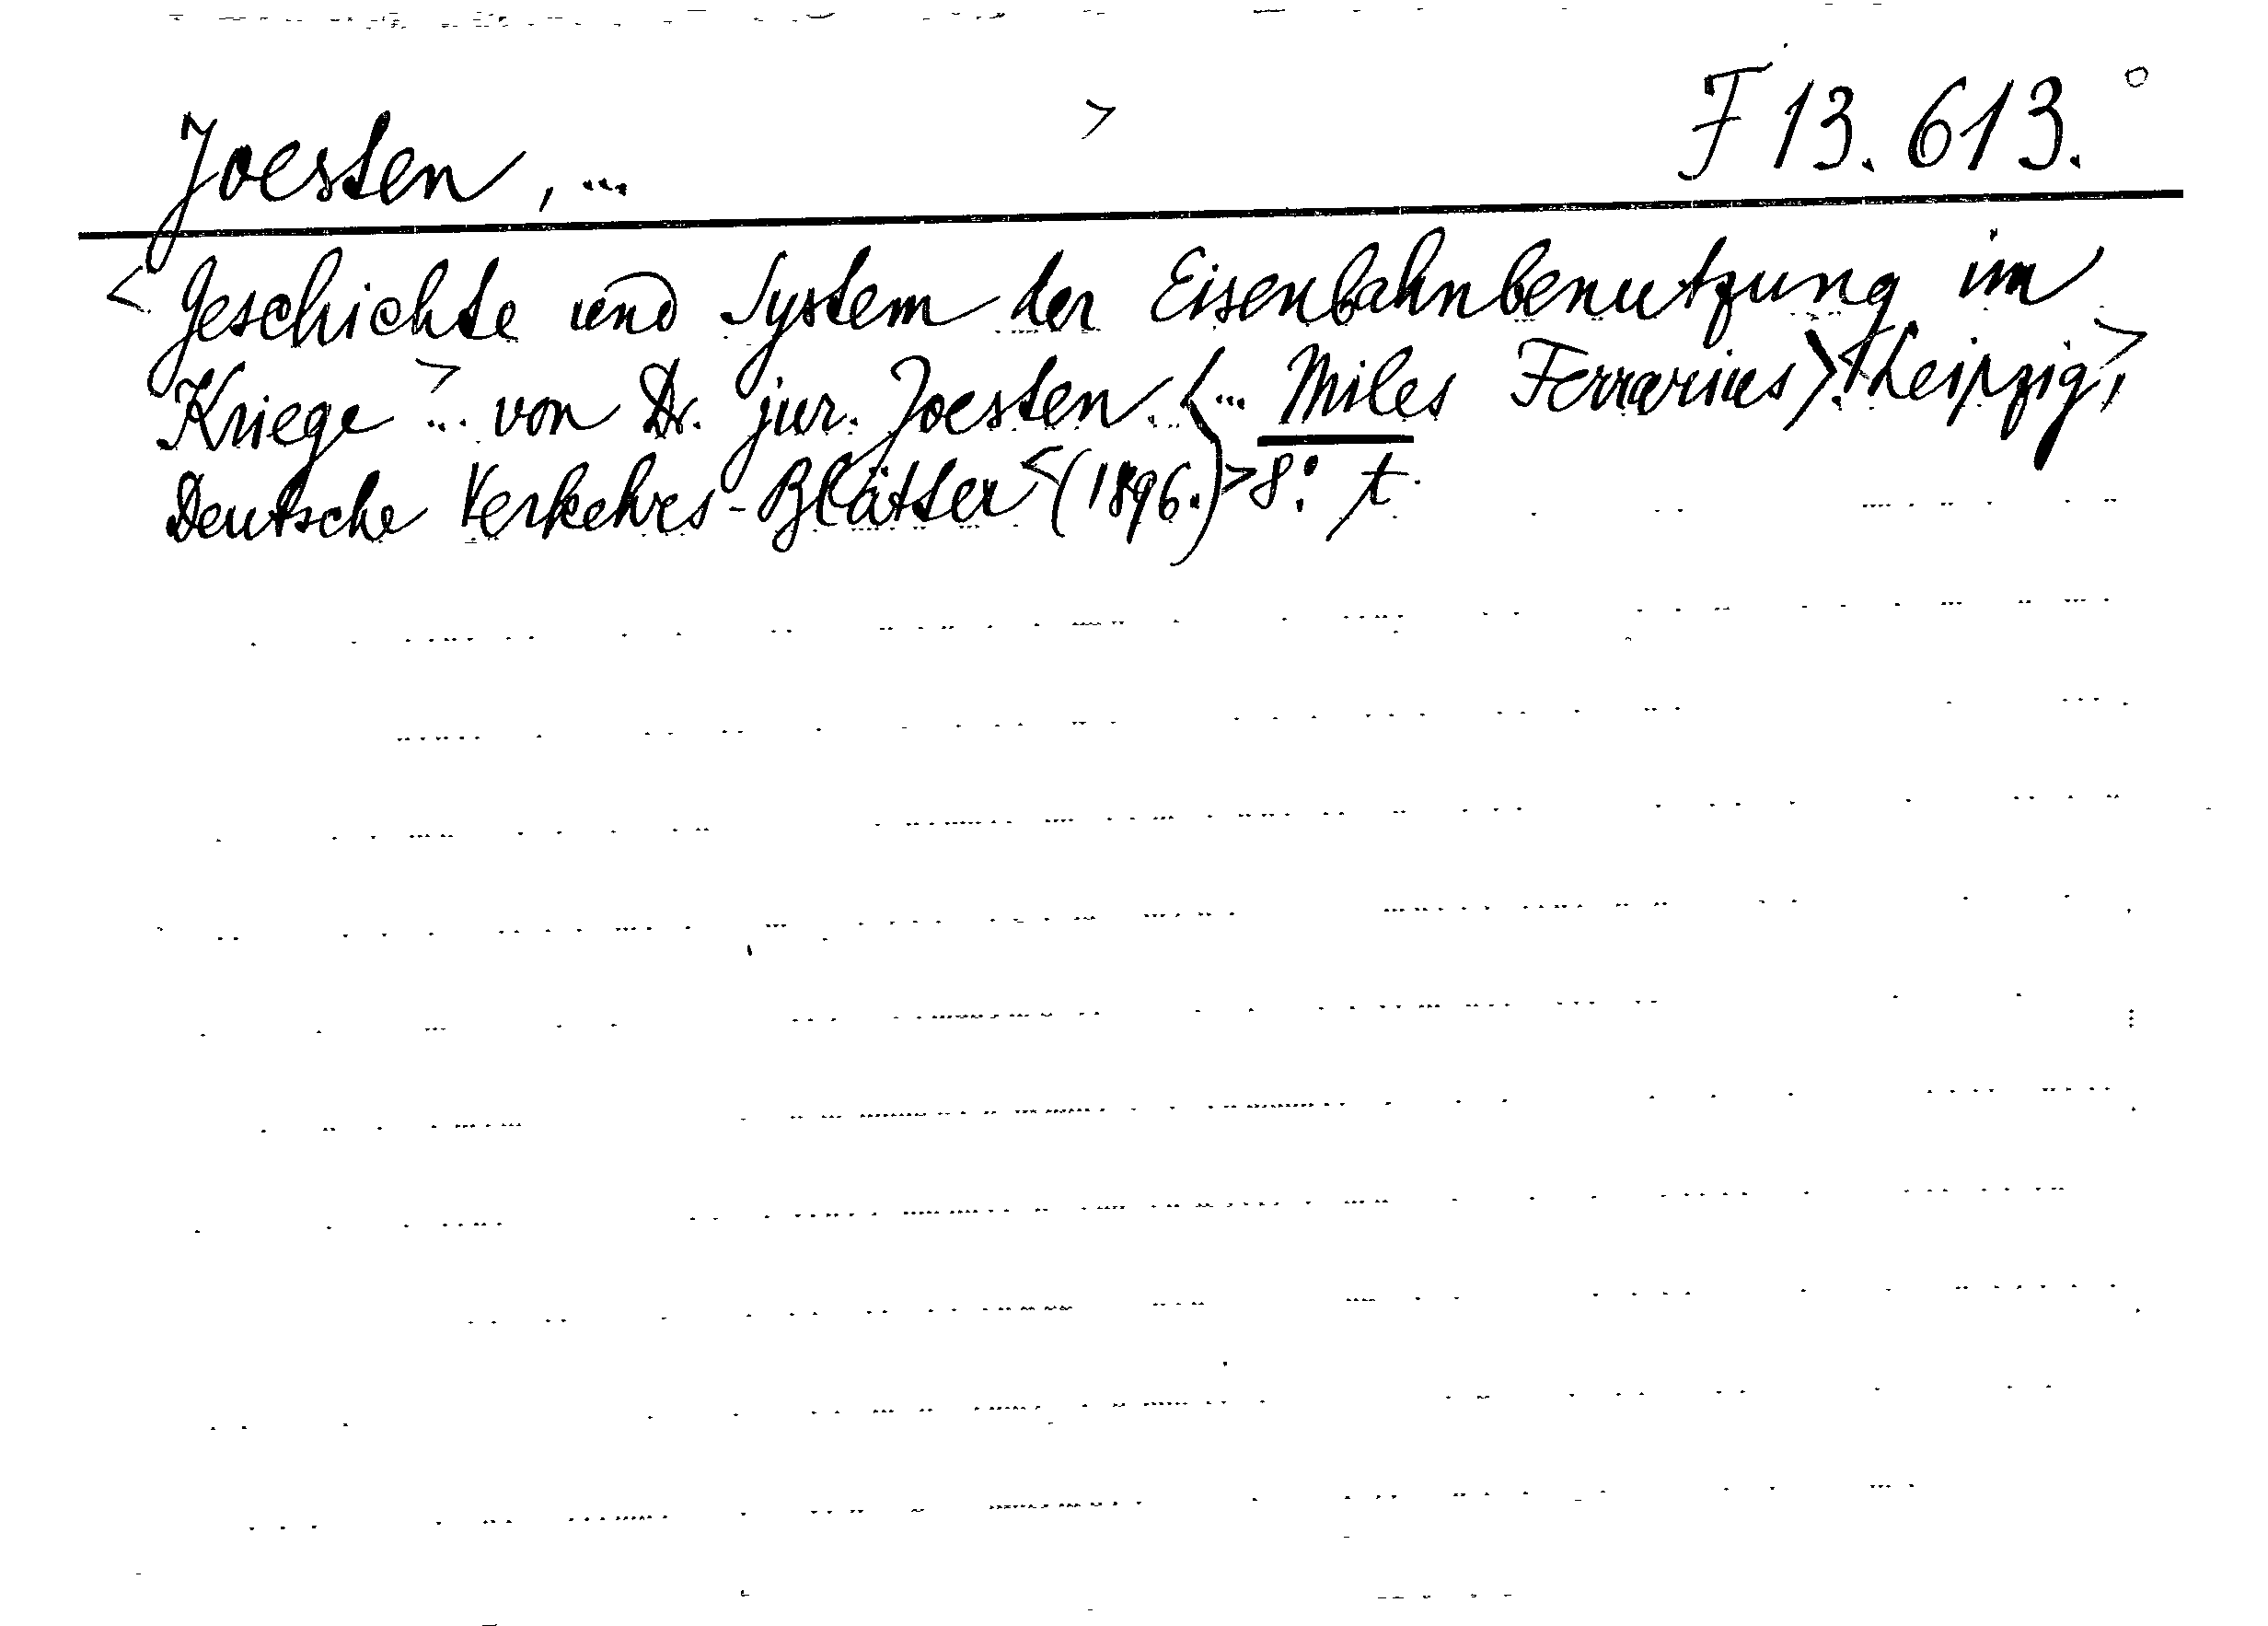 Joesten, ... > F 13.613.°
<Geschichte und System der Eisenbahnbenutzung im
Kriege> ... von Dr. jur. Joesten. (... Miles Ferrarius). <Leipzig>,
Deutsche Verkehrs-Blätter <(1896.)> 8° t.